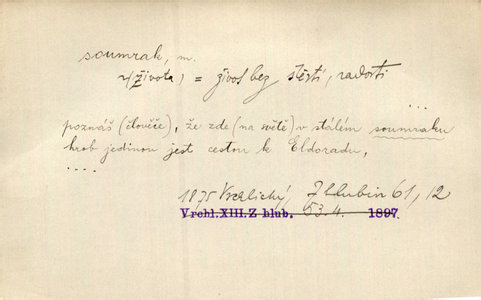 soumrak, m.
~ (života) = život bez štěstí, radosti
...
poznáš (člověče), že zde (na světě) v stálém soumraku
hrob jedinou jest cestou k Eldoradu,
....
1875 Vrchlický, Z hlubin 61, 12
Vrchl.XIII.Z hlub. 53.4. 1897.